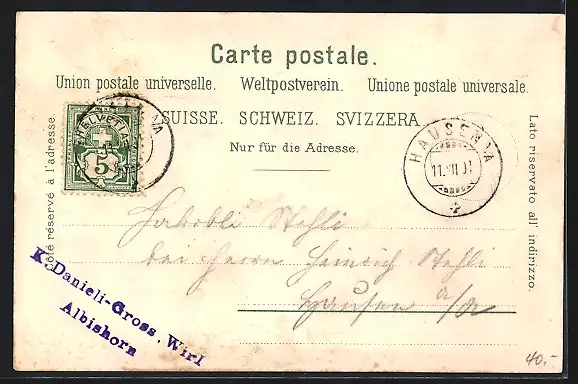 Carte postale.
Union postale universelle. Weltpostverein. Unione postale universale.
SUISSE. SCHWEIZ. SVIZZERA.
Nur für die Adresse.
Côté réservé à l'adresse.
Lato riservato all' indirizzo.
HELVETIA
5
HAUSEN A/A
11.VII.01
Jakobli Stehli
bei Herrn Heinrich Stehli
Hausen a/A
K. Danieli-Gross, Wirt
Albishorn
40.-